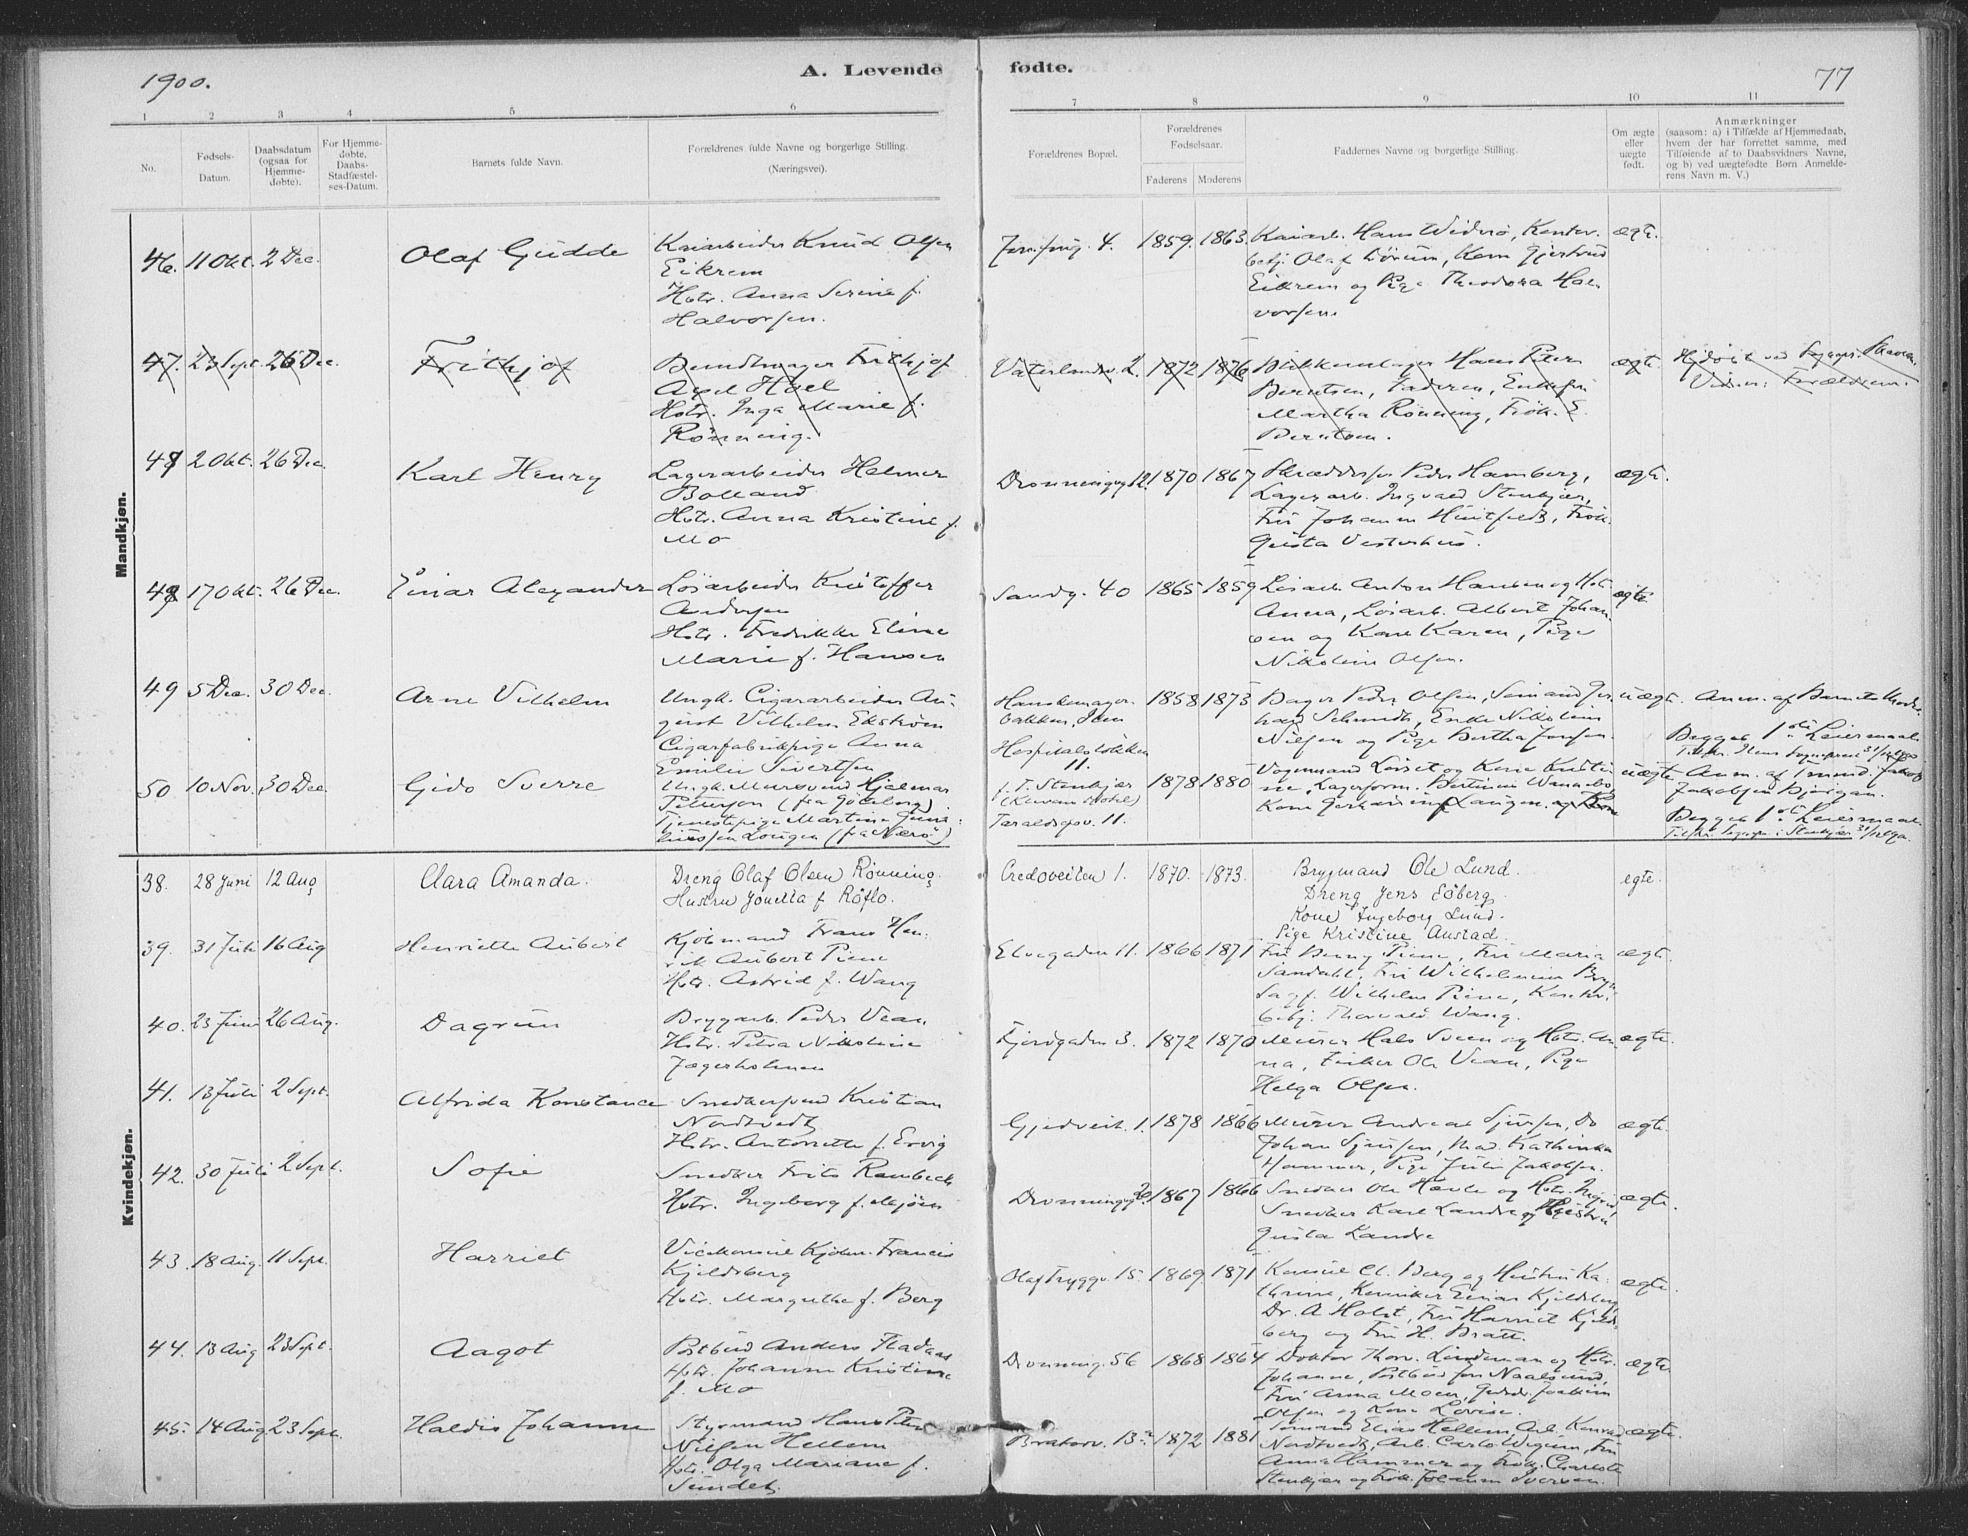 1900.
A. Levende
fødte.
77
1 2 3 4 5 6
7 8 9 10 11
No.
Fødsels-
Datum.
Daabsdatum
(ogsaa for
Hjemme-
døbte).
For Hjemme-
døbte,
Daabs-
Stadfæstel-
ses-Datum.
Barnets fulde Navn.
Forældrenes fulde Navne og borgerlige Stilling.
(Næringsvei).
Forældrenes Bopæl.
Forældrenes
Fødselsaar.
Faderens Moderens
Faddernes Navne og borgerlige Stilling.
Om ægte
eller
uægte
født.
Anmærkninger
(saasom: a) i Tilfælde af Hjemmedaab,
hvem der har forrettet samme, med
Tilføiende af to Daabsvidners Navne,
og b) ved uægtefødte Børn Anmelde-
rens Navn m. V.)
Mandkjøn.
46. 11 Okt. 2 Dec. Olaf Gudde
Kaiarbeider Knud Olsen
Eikrem
Hstr. Anna Serine f.
Halvorsen.
4. 1859. 1863.
Kaiarb. Hans Widerø, Kontor-
betj. Olaf Lörum, Kone Gjertrud
Eikrem og Pige Theodora Hal-
vorsen.
ægte.
47. 23 Sept. 26 Dec. Frithjof
Bundtmager Frithjof
Axel Hoel
Hstr. Inga Marie f.
Rønning.
Vaterlandsv. 2. 1872 1876
Blikkenslager Hans Peter
Berntsen, Faderen, Enkefru
Martha Rønning, Frøk. E.
Berntsen.
ægte.
Vidner: Forældrene.
48 2 Okt. 26 Dec. Karl Henry
Lagerarbeider Helmer
Bolland
Hstr. Anna Kristine f.
Mo
Dronningsg 12. 1870 1867
Peder Hamberg,
Lagerarb. Ingvald Stenkjær,
Fru Johanna Huitfeldt, Frøk.
Gusta Vesterhus.
ægte.
48 17 Okt. 26 Dec. Einar Alexander
Løsarbeider Kristoffer
Andersen
Hstr. Fredrikke Eline
Marie f. Hansen
Sandg. 40 1865 1859
Løsarb. Anton Hansen og Hst.
Anna, Løsarb. Albert Johan-
sen og Kone Karen, Pige
Nikoline Olsen.
ægte.
49 5 Dec. 30 Dec. Arne Vilhelm
Ungk. Cigararbeider Au-
gust Vilhelm Ekstrøm
Cigarfabrikpige Anna
Emilie Sivertsen
Hanskemager-
bakken, Ilen
Hospitalsløkken
11.
1858 1873
Bager Peder Olsen, Sømand Ger-
hard Schmidt, Enke Nikoline
Nilsen og Pige Bertha Jensen.
uægte.
Anm. af Barnets Moder.
Begges 1ste Leiermaal
50 10 Nov. 30 Dec. Gido Sverre
Ungk. Murersvend Hjalmar
Petterson (fra Göteborg)
Tjenestepige Martine
Lougen (fra Nærø)
f. T. Stenkjær
Taraldsgv. 11.
1878 1880
Vognmand Loiset og Kone Kristi-
ne, Lagerform. Bertinus Wannebo,
uægte
Anm. af Jakob
Jakobsen
Begges 1ste Leiermaal
Kvindekjøn.
38. 28 Juni 12 Aug Clara Amanda.
Dreng Olaf Olsen Rønning.
Hustru Jonetta f Røflo.
Credoveiten 1. 1870. 1873.
Brygmand Ole Lund.
Dreng Jens Søberg
Kone Ingeborg Lund.
Pige Kristine Austad.
egte.
39. 31 Juli 16 Aug Henriette Aubert
Kjøbmand Frans Hen-
rik Aubert Piene
Hstr. Astrid f. Wang
Elvegaden 11. 1866 1871
Fru Benny Piene, Fru Maria
Sandahl, Fru Wilhelmine
Sagf. Wilhelm Piene, Kontor-
betj. Thorvald Wang.
ægte.
40. 23 Juni 26 Aug. Dagrun
Brygarb. Peder Vean
Hstr. Petra Nikoline
Jægerholmen
Fjordgaden 3. 1872 1870
Murer Hals Sveen og Hstr. An-
na, Ole Vean, Pige
Helga Olsen.
ægte.
41. 13 Juli 2 Sept. Alfrida Konstance
Snedkersvend Kristian
Nordtvedt
Hstr. Antonette f. Ervig
Gjedveit. 1. 1878 1866
Murer Andreas Sjursen, Do
Johan Sjursen, Mad. Kathinka
Hammer, Pige Julie Jakobsen.
ægte.
42. 30 Juli 2 Sept. Sofie
Snedker Frits Rambeck
Hstr. Ingeborg f. Mjøen
Dronningsg 1867 1866
Snedker Ole Havle og Hstr. Ingrid
Snedker Karl Landre og Hustru
Gusta Landre
ægte.
43. 18 Aug. 11 Sept. Harriet
Vicekonsul Kjøbm. Francis
Kjeldsberg
Hstr. Margrethe f. Berg
Olaf Tryggv. 15. 1869 1871
Konsul Cl. Berg og Hustru Ka-
thrine, Kemiker Einar Kjeldsberg,
Dr. A Holst, Fru Harriet Kjelds-
berg og Fru H. Bratt.
ægte.
44. 13 Aug 23 Sept. Aagot
Postbud Anders Fladaas
Hstr. Johanna Kristine
f. Mo
Dronning. 56 1868 1864
Doktor Thorv. Lindeman og Hstr.
Johanne, Postbud Jon Naalsund,
Fru Anna Moen, Joakim
Olsen og Kone Lovise.
ægte.
45. 14 Aug 23 Sept. Haldis Johanne
Styrmand Hans Peter
Nilsen Hellem
Hstr. Olga Mariane f.
Sundet
Bratørv. 13a 1872 1881
Sømand Elias Hellem, Arb. Konrad
Nordtvedt, Arb. Carlo Wigum, Fru
Anna Hammer og Frøk. Charlotte
Stenkjær og Frøk. Johanna Sversen.
ægte.